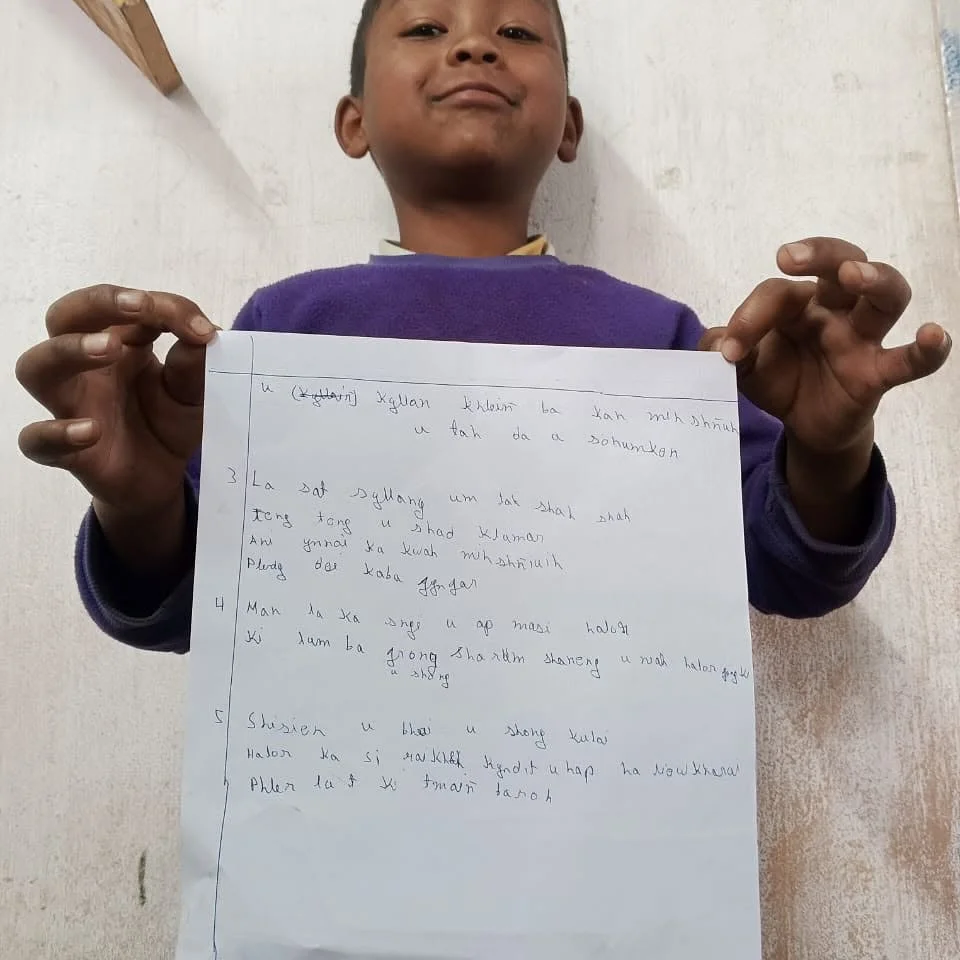 u (Kyllain) Kyllan khlein ba kan mih shñuh
u tah da a sohumkon
3 La sat syllang um tah shah shah
Teng teng u shad Klumar
Ani ynnai ka kwah mih shñiuh
Pleng dei kaba jyngar
4 Man la ka sngi u ap masi halor
Ki lum ba jrong sharum shaneng u wah halor jong ki
u shong
5 Shisien u bhoi u shong kulai
Halor ka si kyndit u hap ha
Phler la t ki tmain baroh